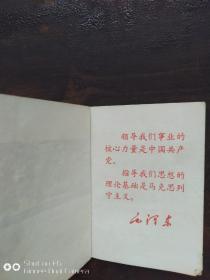 领导我们事业的
核心力量是中国共产
党。
指导我们思想的
理论基础是马克思列
宁主义。
毛泽东
SHOT ON MI 9